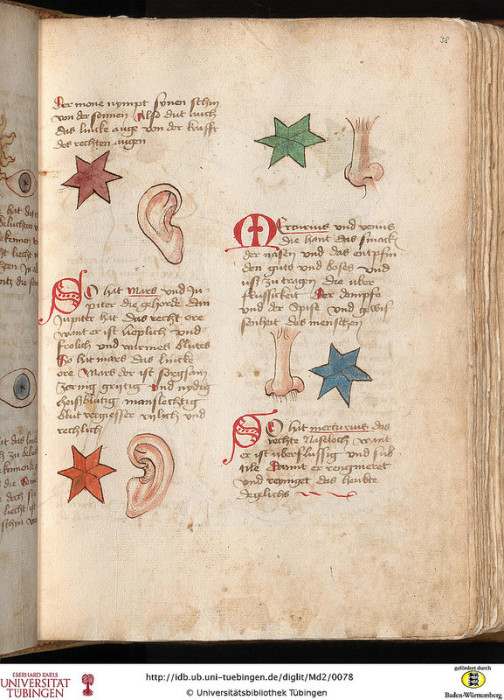 38
Der mone nympt synen schin
von der sonnen Also dut auch
das lincke auge von der krafft
des rechten augen
SO hat Mars und Ju-
piter die gehorde dan
Jupiter hat das recht ore
want er ist lieplich und
frolich und warmes blutes
So hat mars das lincke
ore Mars der ist sorgsam
zornig grytig und nydig
heissblutig manslechtig
blut vergiesser und
rechlich
Mercurius und venus
die hant das smack
der nasen und das entpfin
den guts und boses und
uss zu tragen die uber
flussickeit der dempfe
und der spise und
des menschen
SO hat mercurius das
rechte Naseloch want
er ist uberflussig und sub
tile Damit er
und reyniget das heubte
deglichs
EBERHARD KARLS
UNIVERSITÄT
TÜBINGEN
http://idb.ub.uni-tuebingen.de/diglit/Md2/0078
© Universitätsbibliothek Tübingen
gefördert durch
Baden-Württemberg